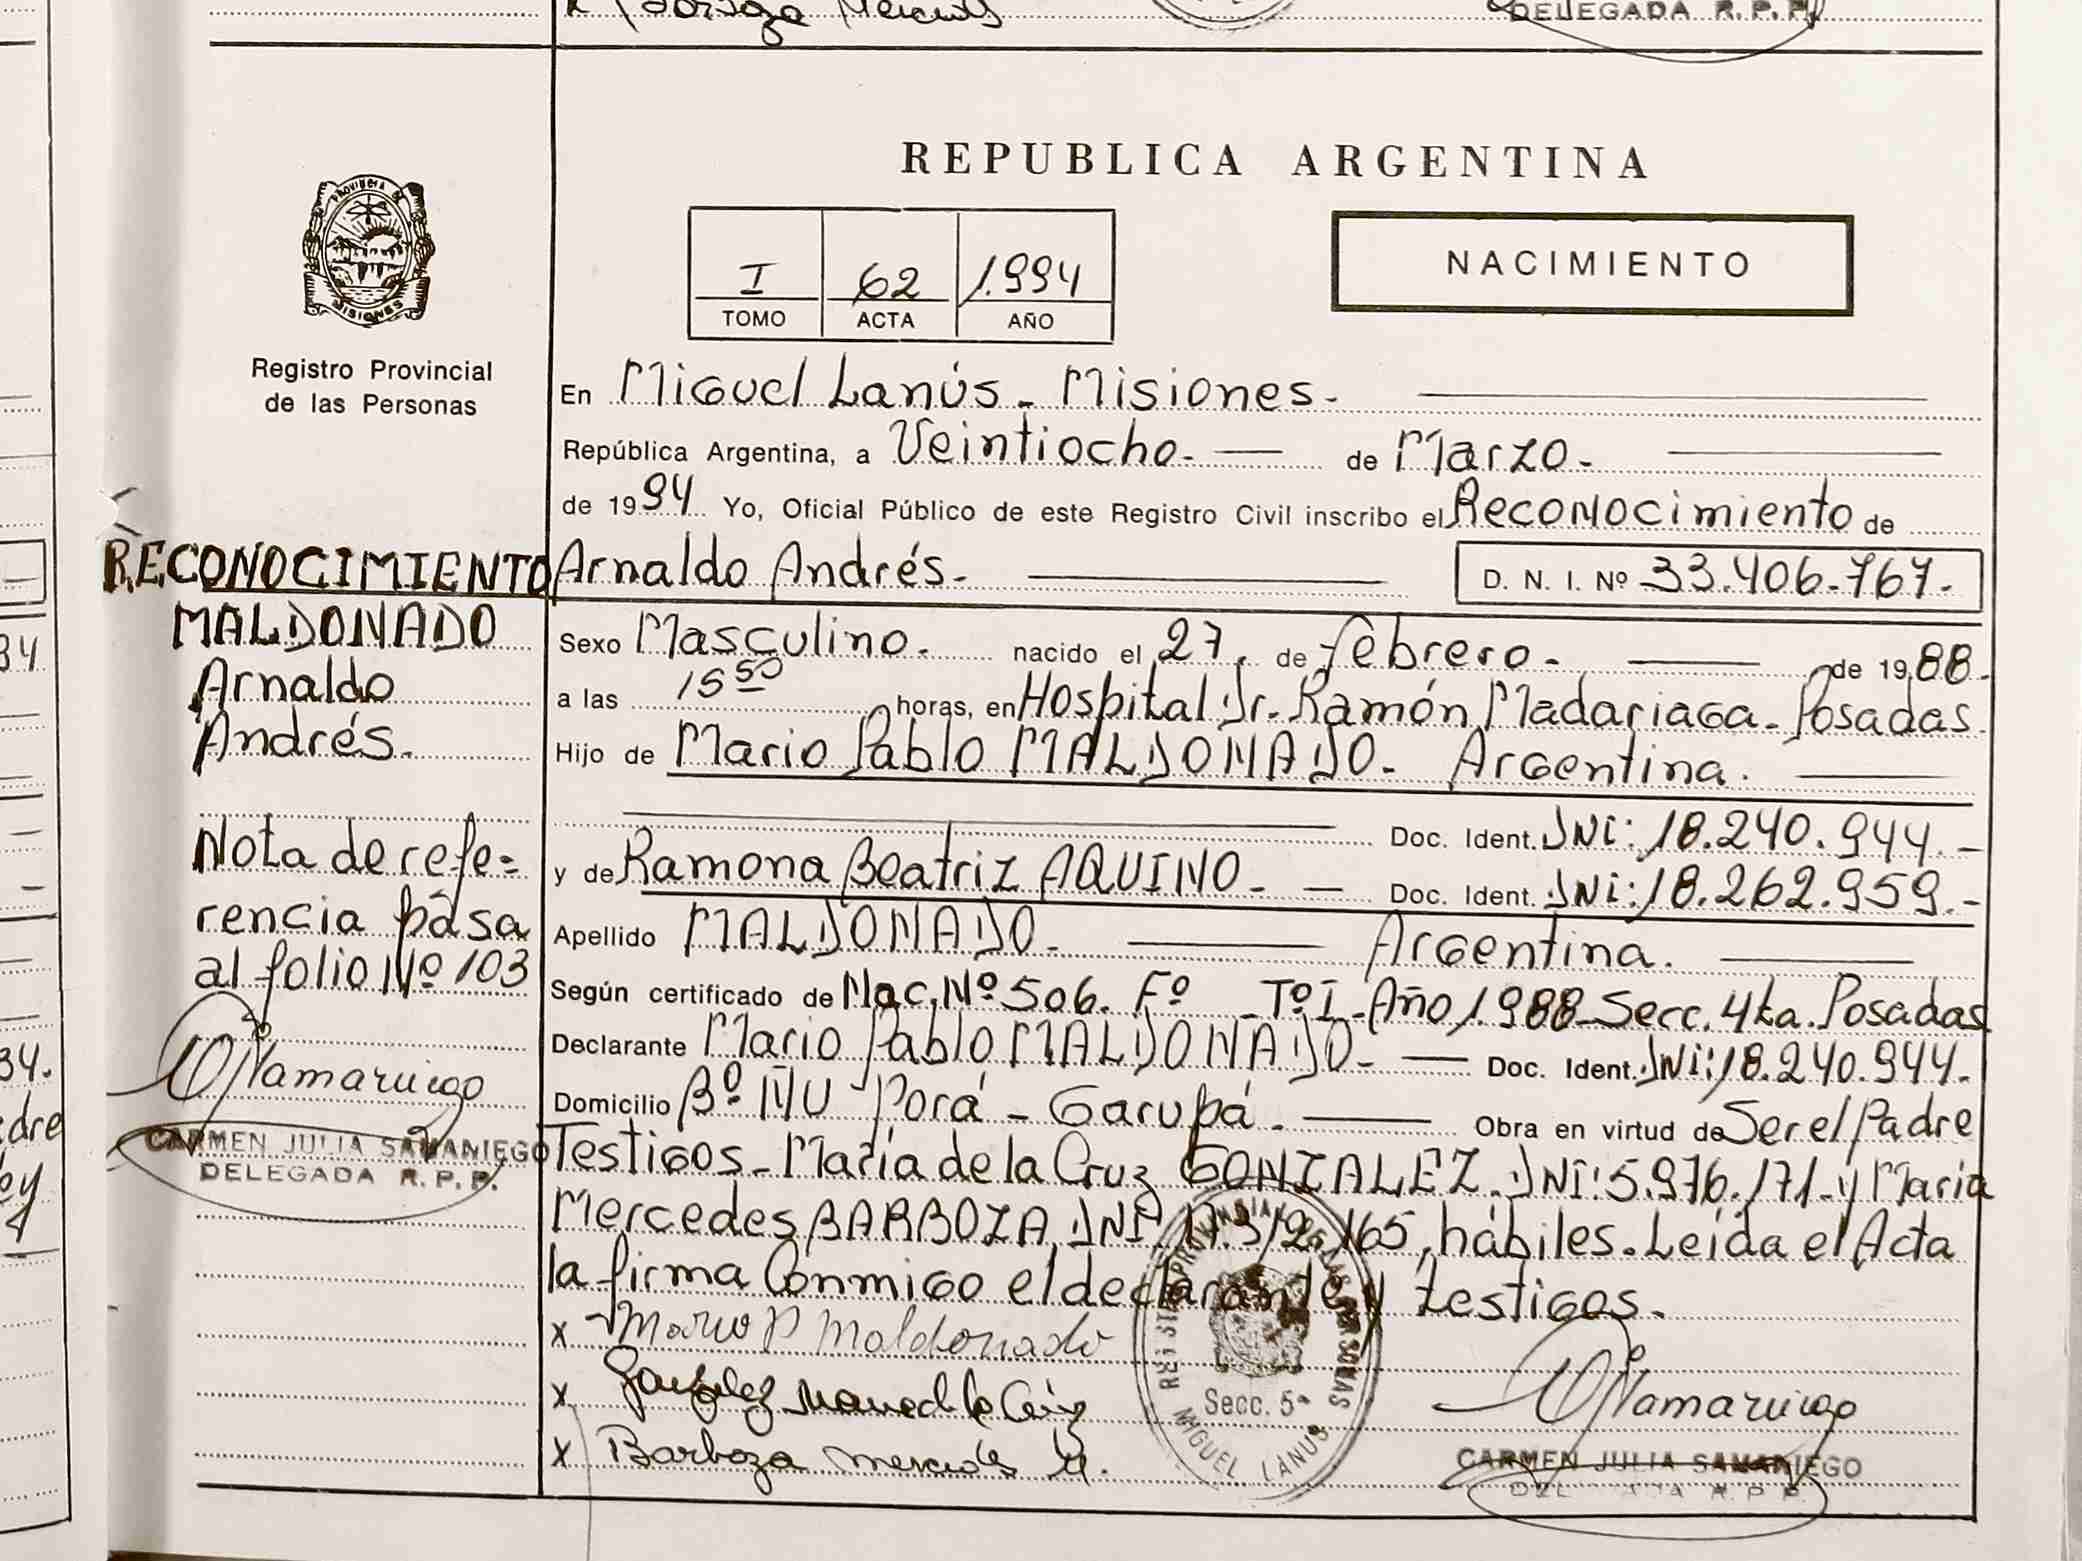 DELEGADA R. P. P.
REPUBLICA ARGENTINA
PROVINCIA DE
MISIONES
I 62 1.994
TOMO ACTA AÑO
NACIMIENTO
Registro Provincial
de las Personas
En Miguel Lanús - Misiones.
República Argentina, a Veintiocho. de Marzo.
de 1994 Yo, Oficial Público de este Registro Civil inscribo el Reconocimiento de
Arnaldo Andrés. D. N. I. Nº 33.406.767.
Sexo Masculino. nacido el 27, de febrero. de 1988.
a las 15 50 horas, en Hospital Dr. Ramón Madariaga - Posadas.
Hijo de Mario Pablo MALDONADO. Argentina.
Doc. Ident. DNi: 18.240.944.-
y de Ramona Beatriz AQUINO. Doc. Ident. DNi: 18.262.959.-
Apellido MALDONADO. Argentina.
Según certificado de Nac. Nº 506. Fº - Tº I - Año 1.988 - Secc. 4ta. Posadas
Declarante Mario Pablo MALDONADO. Doc. Ident. DNi: 18.240.944.
Domicilio Bº ÑU Porá - Garupá. Obra en virtud de Ser el Padre
Testigos - María de la Cruz GONZALEZ. DNi: 5.976.171 - y María
Mercedes BARBOZA DNi 165, hábiles. Leída el Acta
la firma Conmigo el declarante y testigos.
x Mario P Maldonado
x Gonzalez
x Barboza Mercedes M.
Secc. 5ª
MIGUEL LANUS
CARMEN JULIA SAMANIEGO
R. P. P.
RECONOCIMIENTO
MALDONADO
Arnaldo
Andrés.
Nota de refe=
rencia pása
al folio Nº 103
CARMEN JULIA SAMANIEGO
DELEGADA R. P. P.